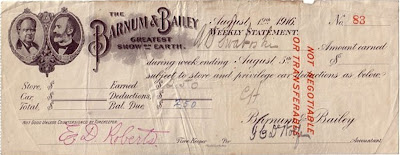 THE
BARNUM & BAILEY
GREATEST
SHOW ON EARTH.
August 12th, 1916
No. 83
WEEKLY STATEMENT.
Amount earned
during week ending August 5th
subject to store and privilege car deductions as below.
Store, $ Earned $
Car $ Deductions, $
Total, $ Bal. Due $ 250
Barnum & Bailey
NOT GOOD UNLESS COUNTERSIGNED BY TIMEKEEPER
E D Roberts
Time Keeper
Per
Accountant.
NOT NEGOTIABLE
OR TRANSFERABLE